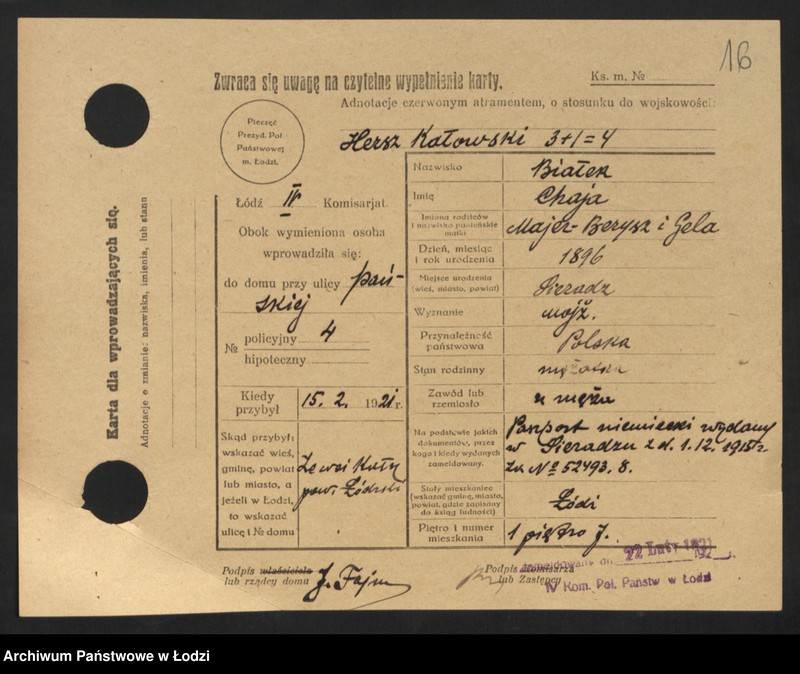 16
Zwraca się uwagę na czytelne wypełnienie karty.
Ks. m. №
Adnotacje czerwonym atramentem, o stosunku do wojskowości:
Pieczęć
Prezyd. Pol
Państwowej
m. Łodzi.
Hersz Kałowski 3+1=4
Karta dla wprowadzających się.
Adnotacje o zmianie: nazwiska, imienia, lub stanu
Łódź IV Komisarjat.
Obok wymieniona osoba
wprowadziła się:
do domu przy ulicy Pań-
skiej
№ policyjny 4
hipoteczny
Kiedy
przybył 15. 2. 1921 r.
Skąd przybył:
wskazać wieś,
gminę, powiat
lub miasto, a
jeżeli w Łodzi,
to wskazać
ulicę i № domu
Ze wsi Kały
pow. Łódzski
Nazwisko Białek
Imię Chaja
Imiona rodziców
i nazwisko panieńskie
matki
Majer-Berysz i Gela
Dzień, miesiąc
i rok urodzenia 1896
Miejsce urodzenia
(wieś, miasto, powiat) Sieradz
Wyznanie mojż.
Przynależność
państwowa Polska
Stan rodzinny mężatka
Zawód lub
rzemiosło u męża
Na podstawie jakich
dokumentów, przez
kogo i kiedy wydanych
zameldowany.
Paszport niemiecki wydany
w Sieradzu z d. 1.12.1915 r.
za № 52493. 8.
Stały mieszkaniec
(wskazać gminę, miasto,
powiat, gdzie zapisany
do ksiąg ludności) Łódź
Piętro i numer
mieszkania 1 piętro J.
Podpis właściciela
lub rządcy domu J. Fajn
Podpis Komisarza
lub Zastępcy
Zameldowany dn. 22 Luty 1921
192 r.
IV Kom. Pol. Państw w Łodzi
Archiwum Państwowe w Łodzi